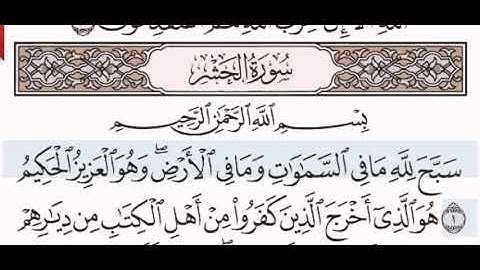 سُورَةُ الحَشْرِ
بِسْمِ ٱللَّهِ ٱلرَّحْمَٰنِ ٱلرَّحِيمِ
سَبَّحَ لِلَّهِ مَا فِي ٱلسَّمَٰوَٰتِ وَمَا فِي ٱلْأَرْضِۖ وَهُوَ ٱلْعَزِيزُ ٱلْحَكِيمُ
١ هُوَ ٱلَّذِيٓ أَخْرَجَ ٱلَّذِينَ كَفَرُوا۟ مِنْ أَهْلِ ٱلْكِتَٰبِ مِن دِيَٰرِهِمْ